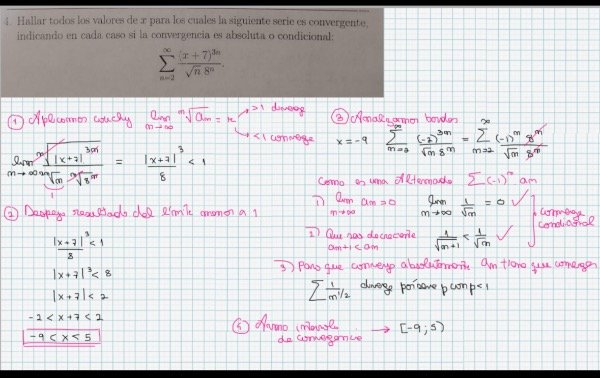 4. Hallar todos los valores de x para los cuales la siguiente serie es convergente,
indicando en cada caso si la convergencia es absoluta o condicional:
∞∑n=2 (x + 7)^3n / √n 8^n.
① Aplicamos Couchy lim n→∞ ⁿ√an = r
>1 diverge
<1 converge
lim n→∞ ⁿ√|x+7|^3n / ⁿ√√n ⁿ√8^n = |x+7|^3 / 8 < 1
1
② Despejo resultado del límite menor a 1
|x+7|^3 / 8 < 1
|x+7|^3 < 8
|x+7| < 2
-2 < x+7 < 2
-9 < x < 5
③ Analizamos bordes
x = -9 ∞∑n=2 (-2)^3n / √n 8^n = ∞∑n=2 (-1)^n 8^n / √n 8^n
Como es una Alternada ∑(-1)^n an
1) lim n→∞ an = 0 lim n→∞ 1/√n = 0 ✓
2) Que sea decreciente
an+1 < an 1/√n+1 < 1/√n ✓
converge
condicional
3) Para que converja absolutamente an tiene que converger
∑ 1/n^1/2 diverge por serie p con p<1
④ Armo intervalo
de convergencia → [-9; 5)